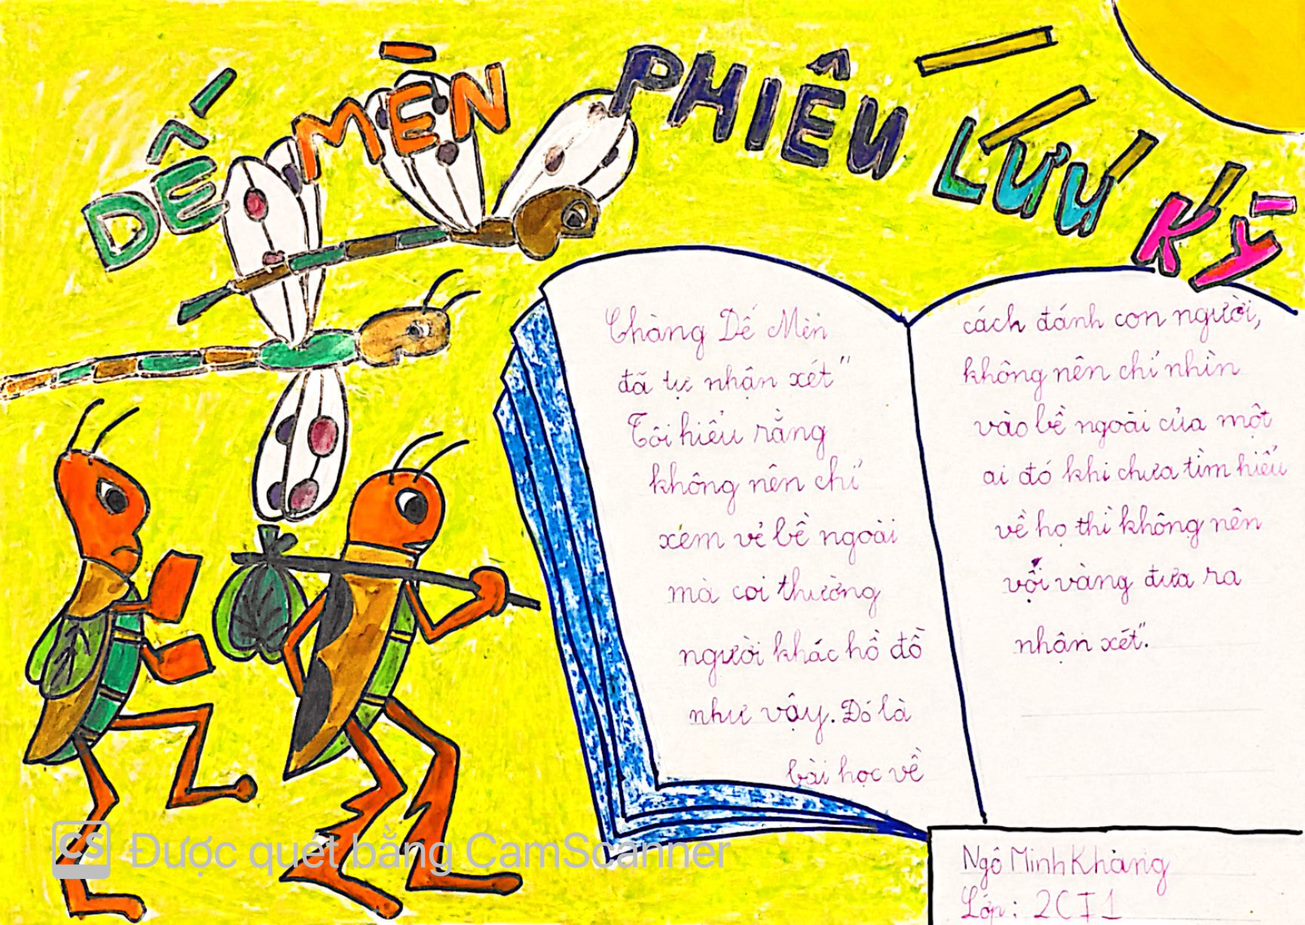 DẾ MÈN PHIÊU LƯU KÝ
Chàng Dế Mèn
đã tự nhận xét "
Tôi hiểu rằng
không nên chỉ
xem vẻ bề ngoài
mà coi thường
người khác hồ đồ
như vậy. Đó là
bài học về
cách đánh con người,
không nên chỉ nhìn
vào bề ngoài của một
ai đó khi chưa tìm hiểu
về họ thì không nên
vội vàng đưa ra
nhận xét".
Ngô Minh Khàng
Lớp: 2CI1
CS Được quét bằng CamScanner